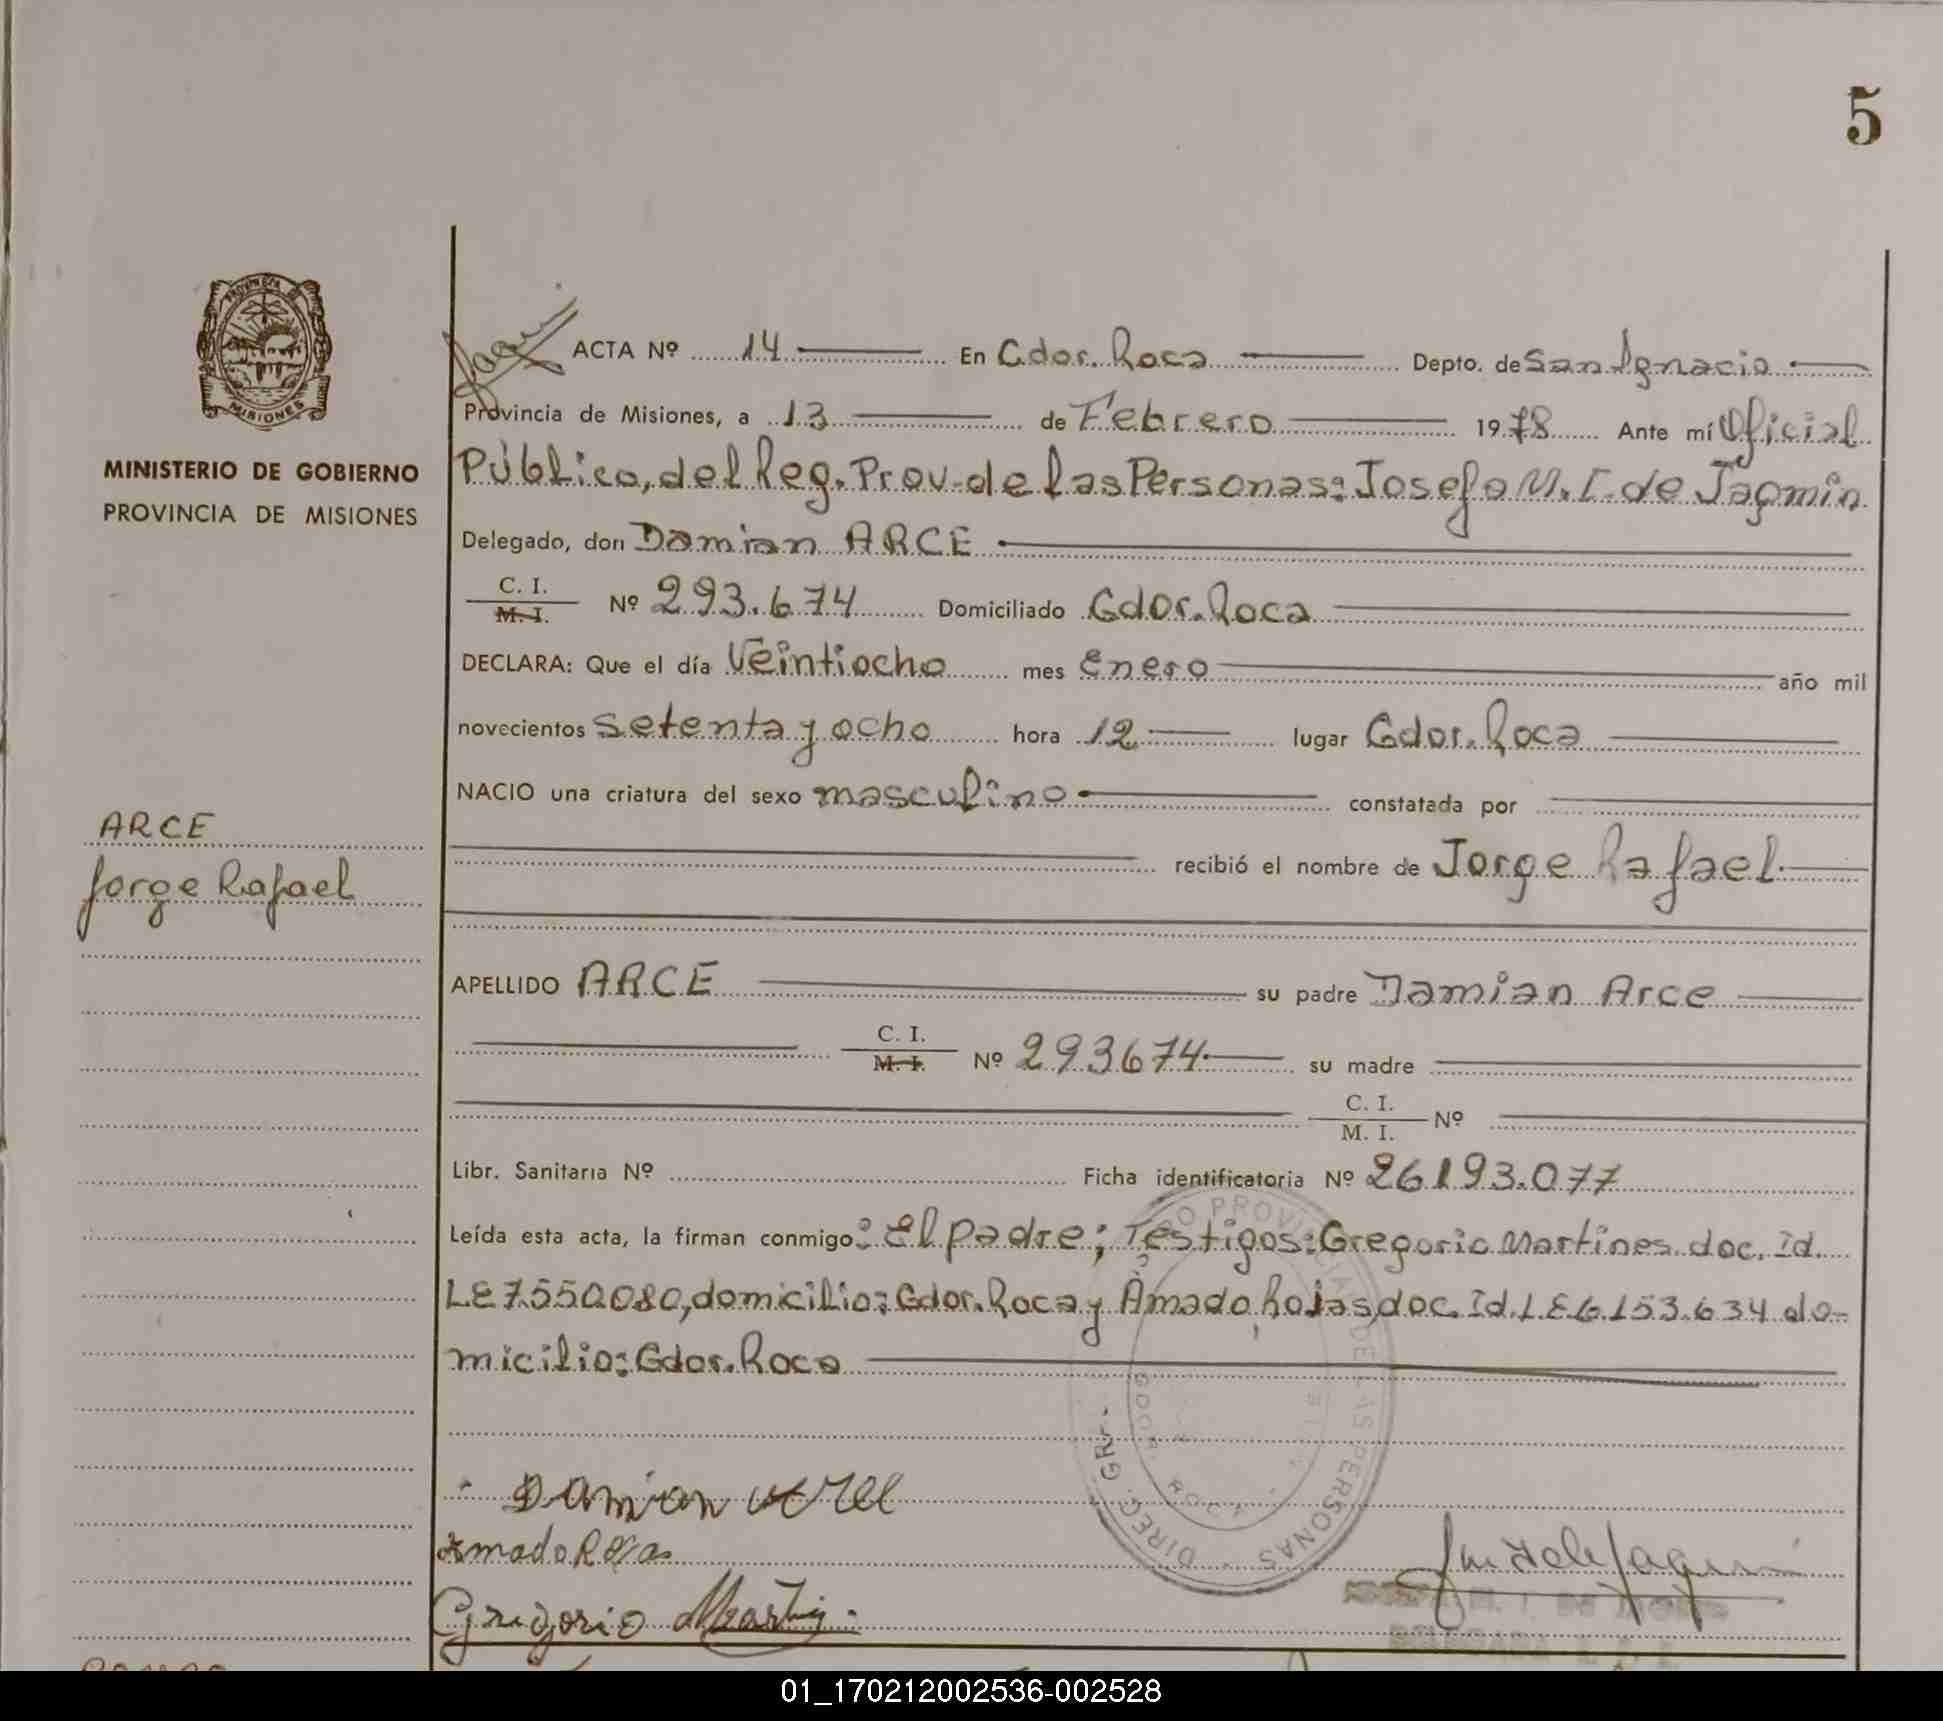 5
PROVINCIA DE
MISIONES
MINISTERIO DE GOBIERNO
PROVINCIA DE MISIONES
ARCE
Jorge Rafael
ACTA Nº 14 En Gdor. Roca Depto. de San Ignacio
Provincia de Misiones, a 13 de Febrero 1978 Ante mí Oficial
Público, del Reg. Prov. de las Personas: Josefa M. I. de Jaqmin
Delegado, don Damian ARCE
C. I.
M. I. Nº 293.674 Domiciliado Gdor. Roca
DECLARA: Que el día Veintiocho mes Enero año mil
novecientos setenta y ocho hora 12 lugar Gdor. Roca
NACIO una criatura del sexo masculino constatada por
recibió el nombre de Jorge Rafael
APELLIDO ARCE su padre Damian Arce
C. I.
M. I. Nº 293674 su madre
C. I.
M. I. Nº
Libr. Sanitaria Nº Ficha identificatoria Nº 26193.077
Leída esta acta, la firman conmigo: El padre; Testigos: Gregorio Martines doc. Id.
LE 7.550.080, domicilio: Gdor. Roca y Amado Rojas, doc. Id. L.E 6.153.634 do-
micilio: Gdor. Roca
Damian Arce
Amado Rojas
Gregorio Martin
PROVINCIAL DE LAS PERSONAS
DIREC. GR
GDOR. ROCA
01_170212002536-002528